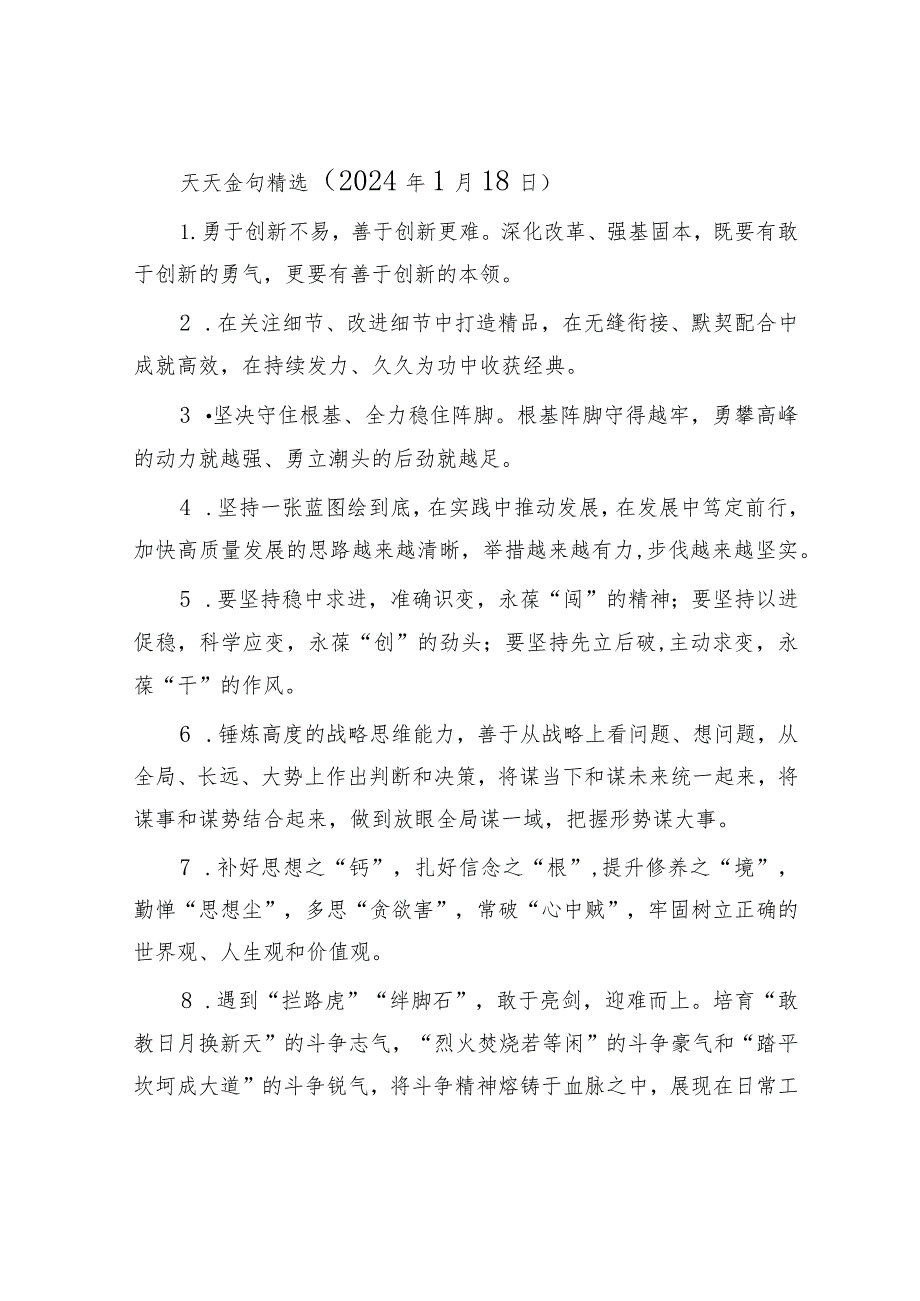 天天金句精选（2024 年 1 月 18 日）
1.勇于创新不易，善于创新更难。深化改革、强基固本，既要有敢
于创新的勇气，更要有善于创新的本领。
2 .在关注细节、改进细节中打造精品，在无缝衔接、默契配合中
成就高效，在持续发力、久久为功中收获经典。
3 •坚决守住根基、全力稳住阵脚。根基阵脚守得越牢，勇攀高峰
的动力就越强、勇立潮头的后劲就越足。
4 .坚持一张蓝图绘到底，在实践中推动发展，在发展中笃定前行，
加快高质量发展的思路越来越清晰，举措越来越有力,步伐越来越坚实。
5 .要坚持稳中求进，准确识变，永葆“闯”的精神；要坚持以进
促稳，科学应变，永葆“创”的劲头；要坚持先立后破,主动求变，永
葆“干”的作风。
6 .锤炼高度的战略思维能力，善于从战略上看问题、想问题，从
全局、长远、大势上作出判断和决策，将谋当下和谋未来统一起来，将
谋事和谋势结合起来，做到放眼全局谋一域，把握形势谋大事。
7 .补好思想之“钙”，扎好信念之“根”,提升修养之“境”，
勤惮“思想尘”，多思“贪欲害”，常破“心中贼”，牢固树立正确的
世界观、人生观和价值观。
8 .遇到“拦路虎”“绊脚石”，敢于亮剑，迎难而上。培育“敢
教日月换新天”的斗争志气，“烈火焚烧若等闲”的斗争豪气和“踏平
坎坷成大道”的斗争锐气，将斗争精神熔铸于血脉之中，展现在日常工